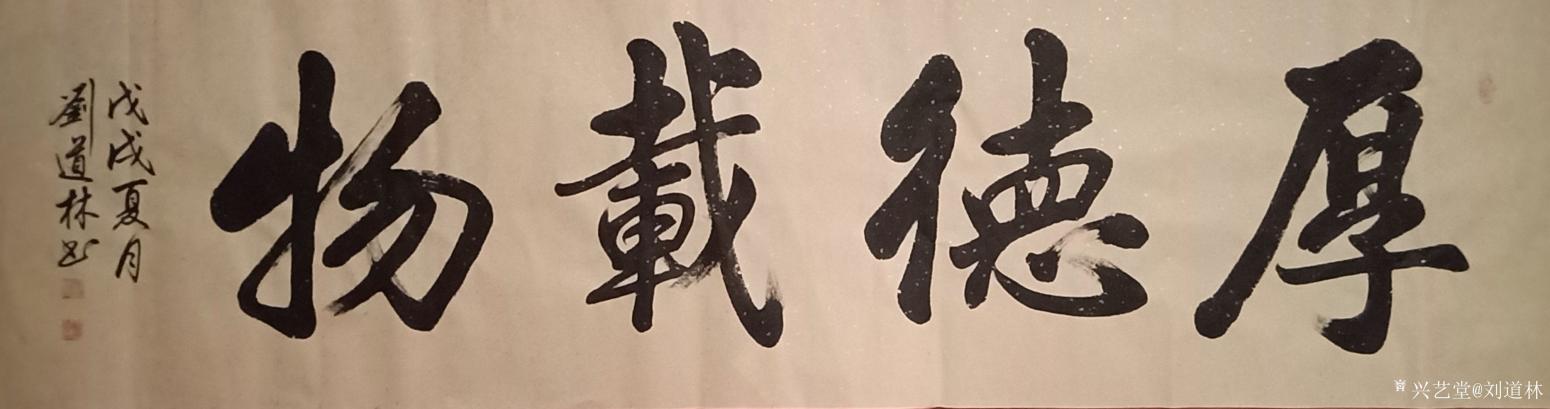 厚德載物
戊戌夏月
劉道林书
兴艺堂@刘道林